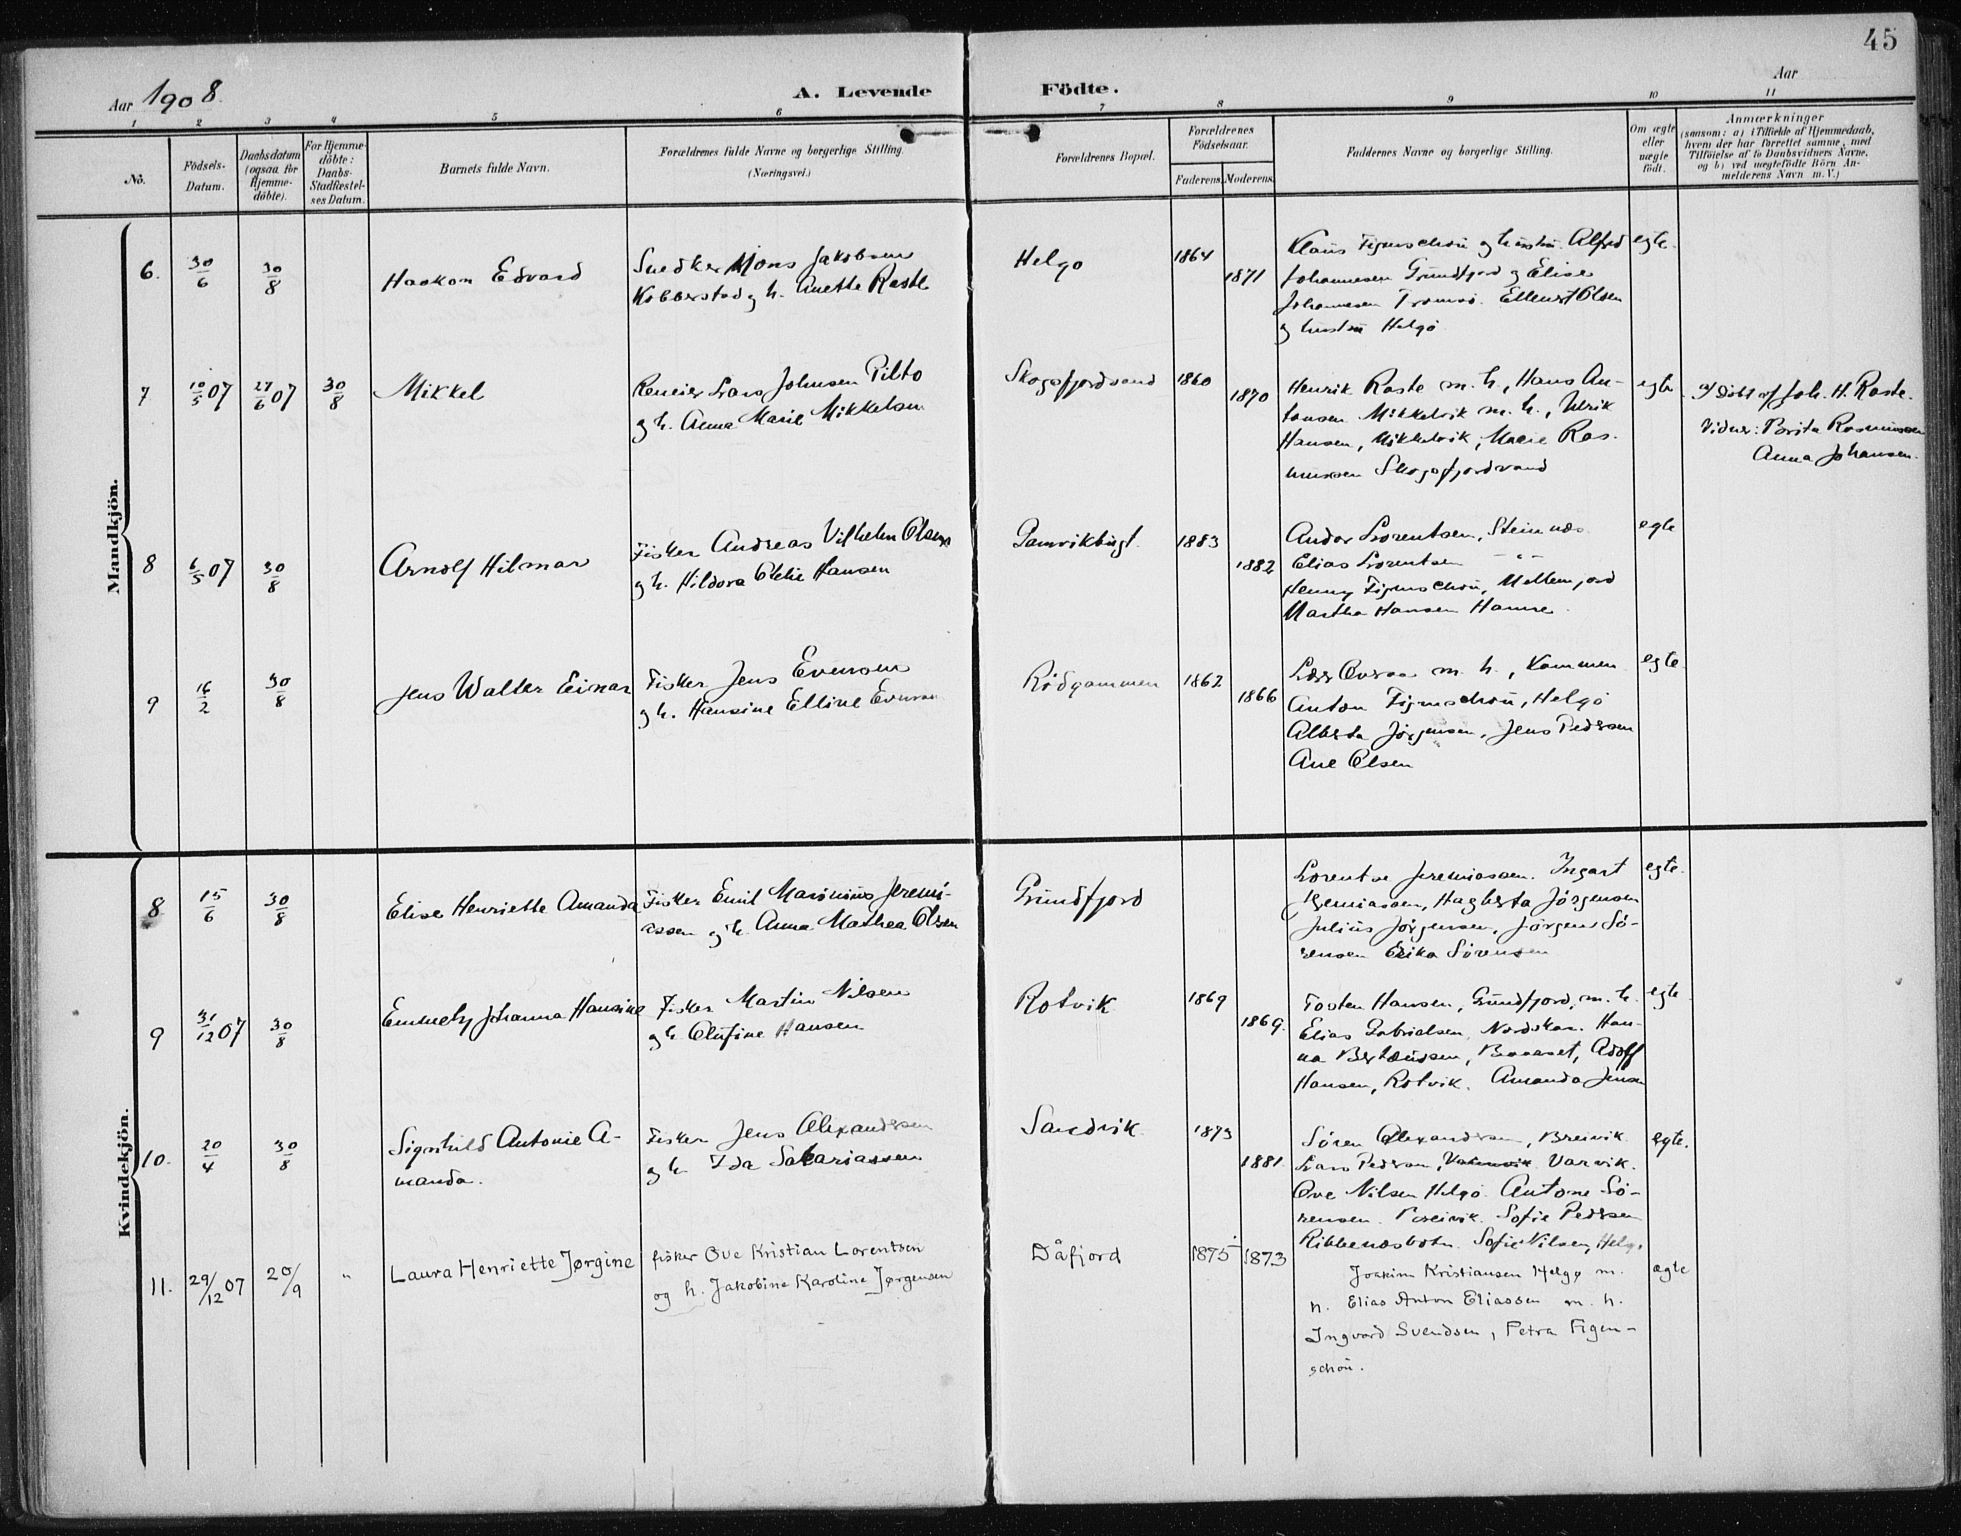 45
Aar 1908.
A. Levende Födte.
Aar
1 2 3 4 5 6 7 8 9 10 11
No.
Födsels-
Datum.
Daabsdatum
(ogsaa for
Hjemme-
döbte).
For Hjemme-
döbte:
Daabs-
Stadfæstel-
ses Datum.
Barnets fulde Navn.
Forældrenes fulde Navne og borgerlige Stilling.
(Næringsvei.)
Forældrenes Bopæl.
Forældrenes
Födselsaar.
Faderens. Moderens.
Faddernes Navne og borgerlige Stilling.
Om ægte
eller
uægte
født.
Anmærkninger
(saasom: a) i Tilfælde af Hjemmedaab,
hvem der har forrettet samme, med
Tilföielse af to Daabsvidners Navne,
og b) ved uægtefödte Börn An-
melderens Navn m. V.)
Mandkjön.
6. 30/6 30/8
Haakon Edvard
Snedker Mons Jakobsen
Kobberstad og h. Anette Raste
Helgø
1864
1871
Klaus Figenschou og hustru. Alfred
Johannesen Grundfjord og Elise
Johannesen Tromsø. Ellert Olsen
og hustru Helgø
egte.
7 10/5 07 27/6 07 30/8
Mikkel
Reneier Lars Johnsen Pilto
og h. Anna Marie Mikkelsen
Skogsfjordvand
1860
1870
Henrik Raste m. h., Hans An-
tonsen Mikkelvik m. h., Ulrik
Hansen, Mikkelvik, Marie Ras-
mussen Skogsfjordvand
egte
Døbt af Joh. H. Raste.
Vidner: Brita Rasmussen
Anna Johansen.
8 6/5 07 30/8
Arnolf Hilmar
Fisker Andreas Vilhelm Olsen
og h. Hildora Oletie Hansen
Gamvikbugt.
1883
1882
Andor Lorentsen, Steinnæs
Elias Lorentsen – " –
Henny Figenschou, Mellemjord
Martha Hansen Hamre.
egte
9 16/2 30/8
Jens Walter Einar
Fisker Jens Evensen
og h. Hansine Elline Evensen
Rödgammen
1862
1866
m. h., Kammen
Anton Figenschou, Helgö
Alberta Jörgensen, Jens Pedersen
Ane Olsen
egte
Kvindekjön.
8 15/6 30/8
Elise Henriette Amanda
Fisker Emil Marinius Jeremi-
assen og h. Anna Mathea Olsen
Grundfjord
Lorentse Jeremiassen. Ingart
Jeremiassen, Hagberta Jörgensen
Julius Jörgensen, Jörgen Sö-
rensen Erika Sörensen
egte.
9 31/12 07 30/8
Emmely Johanna Hansine
Fisker Martin Nilsen
og h Olufine Hansen
Rotvik
1869
1869.
Torsten Hansen, Grundfjord, m. h.
Elias Gabrielsen, Nordskar. Han-
na Bertheussen, Adolf
Hansen, Rotvik. Amanda Jensen
egte
10. 20/4 30/8
Signhild Antonie A-
manda.
Fisker Jens Alexandersen
og h Ida Sakariassen
Sandvik
1873
1881
Sören Alexandersen, Breivik
Lars Pedersen, Varvik.
Ove Nilsen Helgö. Antone Sö-
rensen. Breivik. Sofie Pedersen
Ribbenæsbotn. Sofie Nilsen, Helgø
egte.
11. 29/12 07 20/9 "
Laura Henriette Jørgine
fisker Ove Kristian Lorentsen
og h. Jakobine Karoline Jørgensen
Dåfjord
1875
1873
Joakim Kristiansen Helgø m.
h. Elias Anton Eliassen m. h.
Ingvard Svendsen, Petra Figen-
schou.
ægte